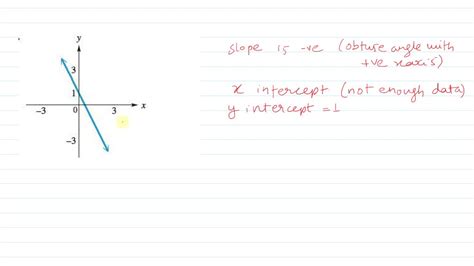 y
slope is -ve (obtuse angle with
+ve xaxis)
3
x intercept (not enough data)
1
y intercept = 1
-3
0
3
x
-3